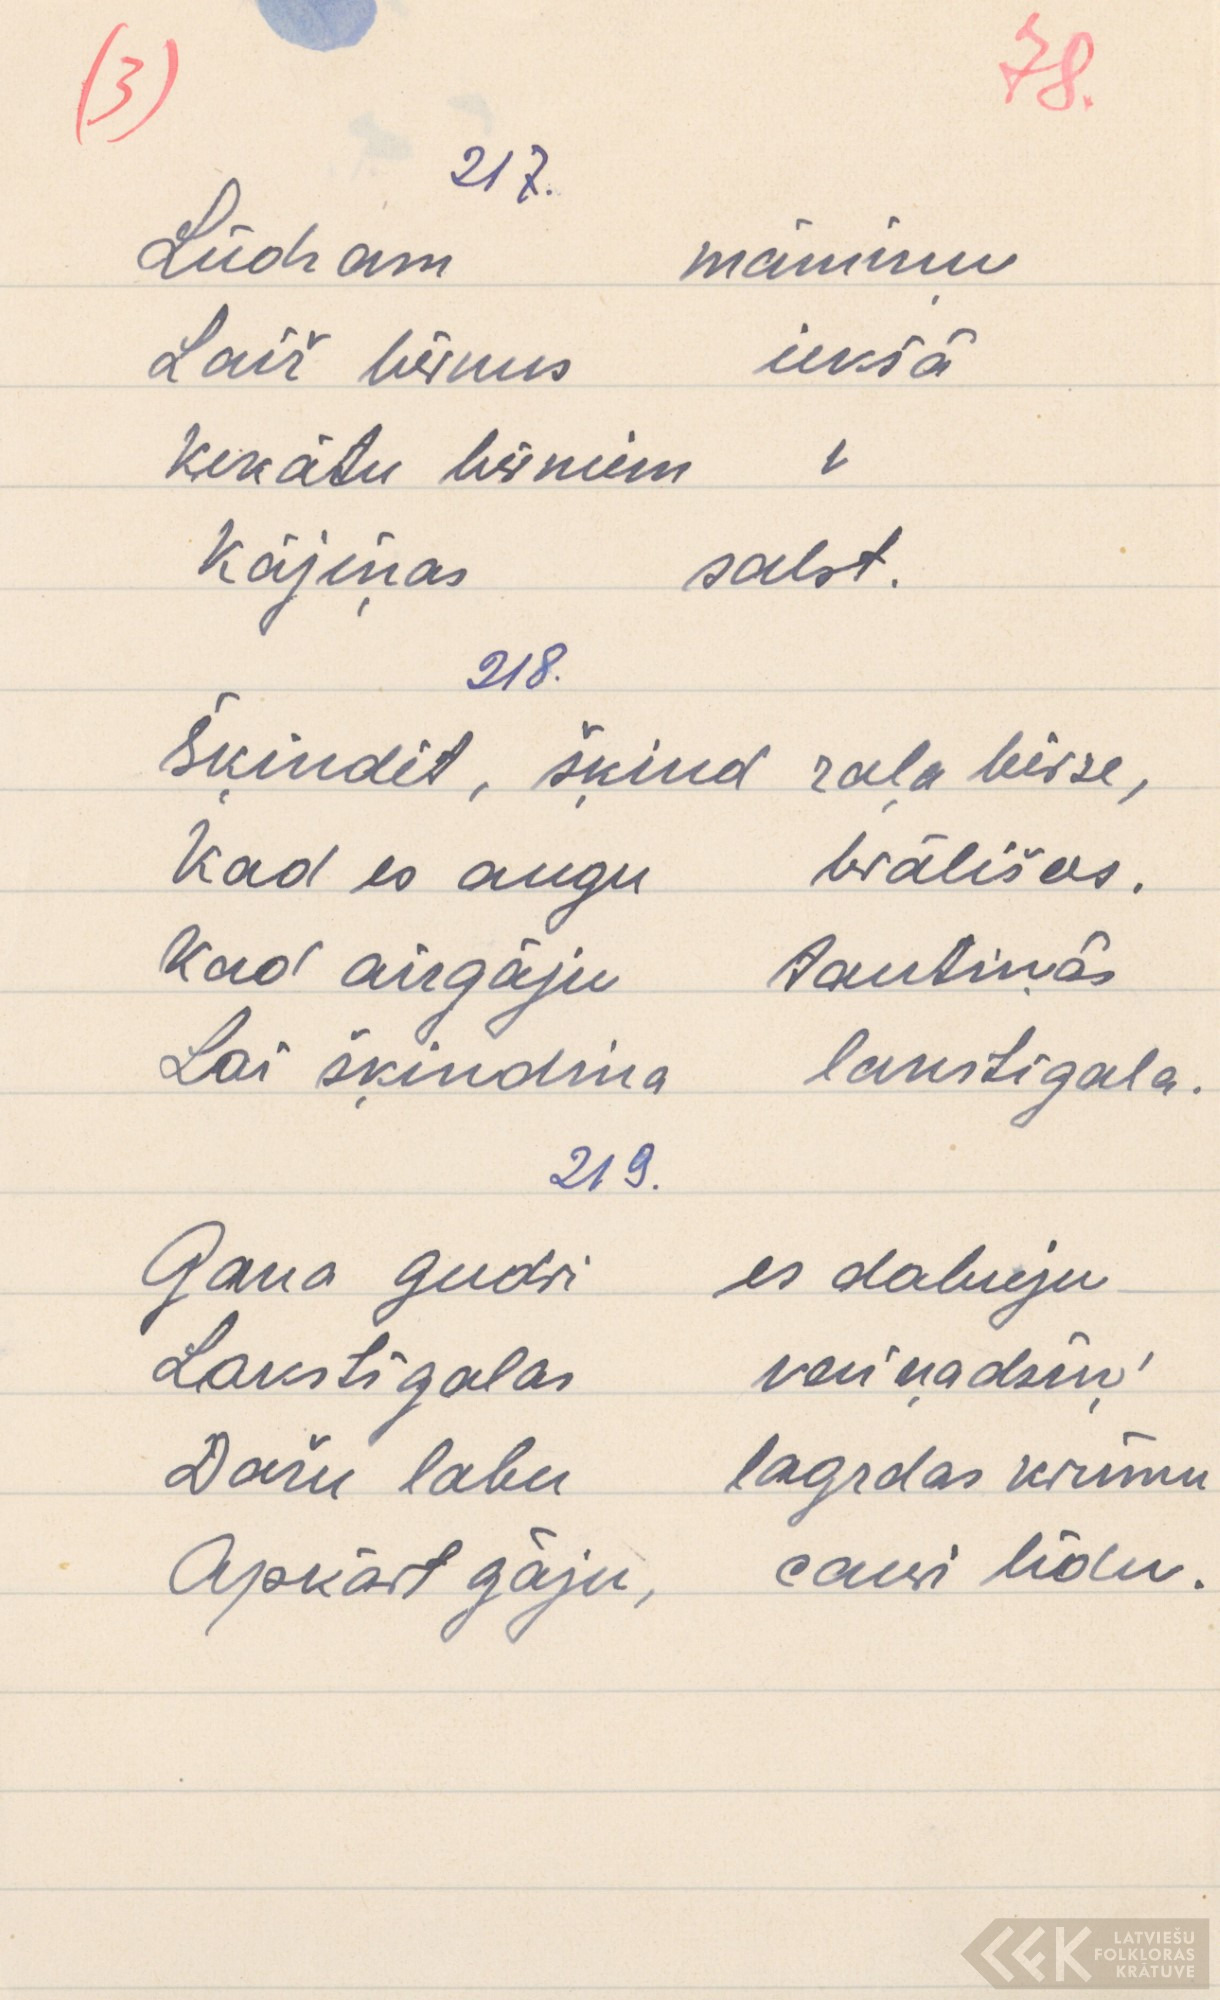 (3) 78.
217.
Lūdzam māmiņu
Laiž bērnus iekšā
Ķekātu bērniem
Kājiņas salst.
218.
Šķindēt, šķind zaļa birze,
Kad es augu brālīšos.
Kad aizgāju tautiņās
Lai šķindina lakstīgala.
219.
Gana gudri es dabuju
Lakstīgalas vaiņadziņ'
Dažu labu lagzdas krūmu
Apkārt gāju, cauri līdu.
LATVIEŠU
FOLKLORAS
KRĀTUVE